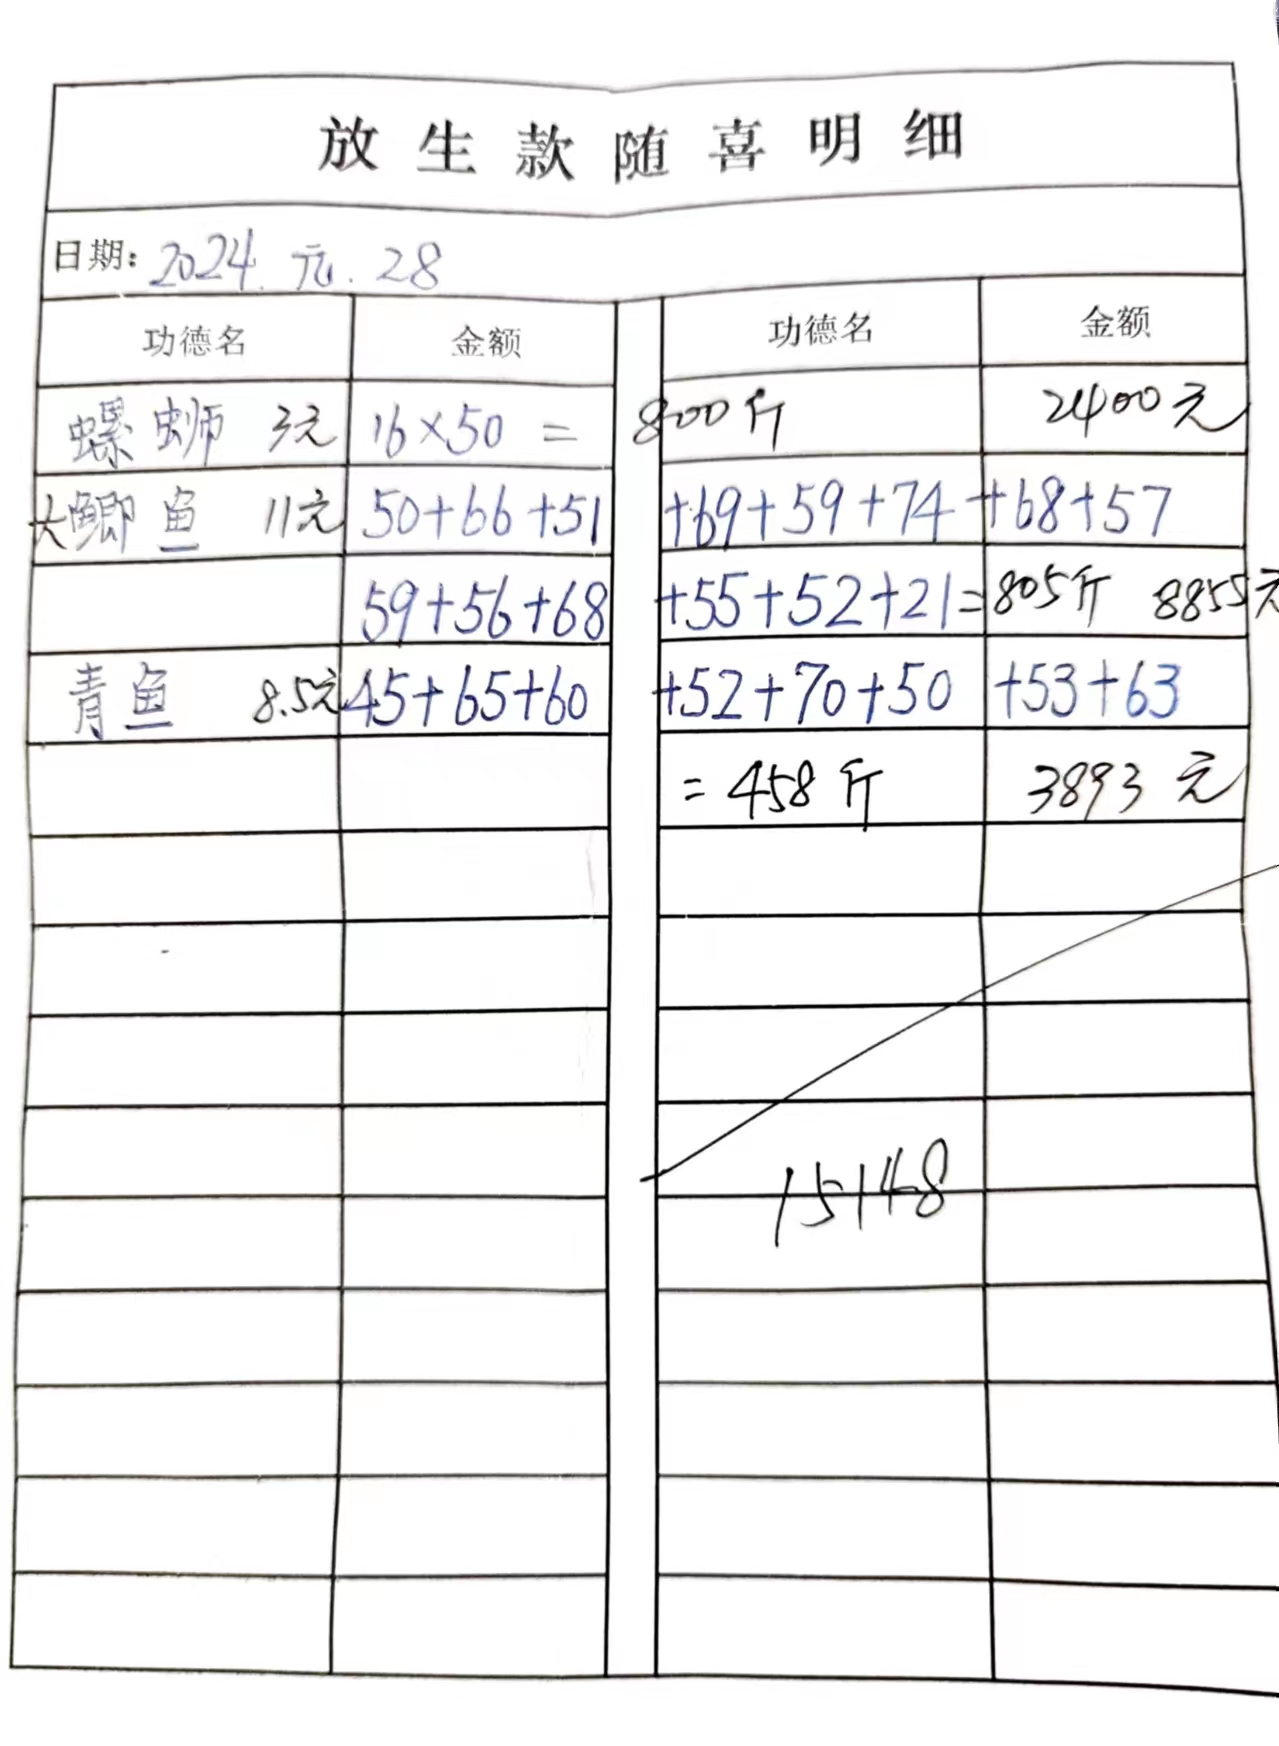 放生款随喜明细
日期: 2024.元.28
功德名 金额 功德名 金额
螺蛳 3元 16×50 = 800斤 2400元
大鲫鱼 11元 50+66+51 +69+59+74 +68+57
59+56+68 +55+52+21=805斤 8855元
青鱼 8.5元 45+65+60 +52+70+50 +53+63
=458斤 3893元
15148